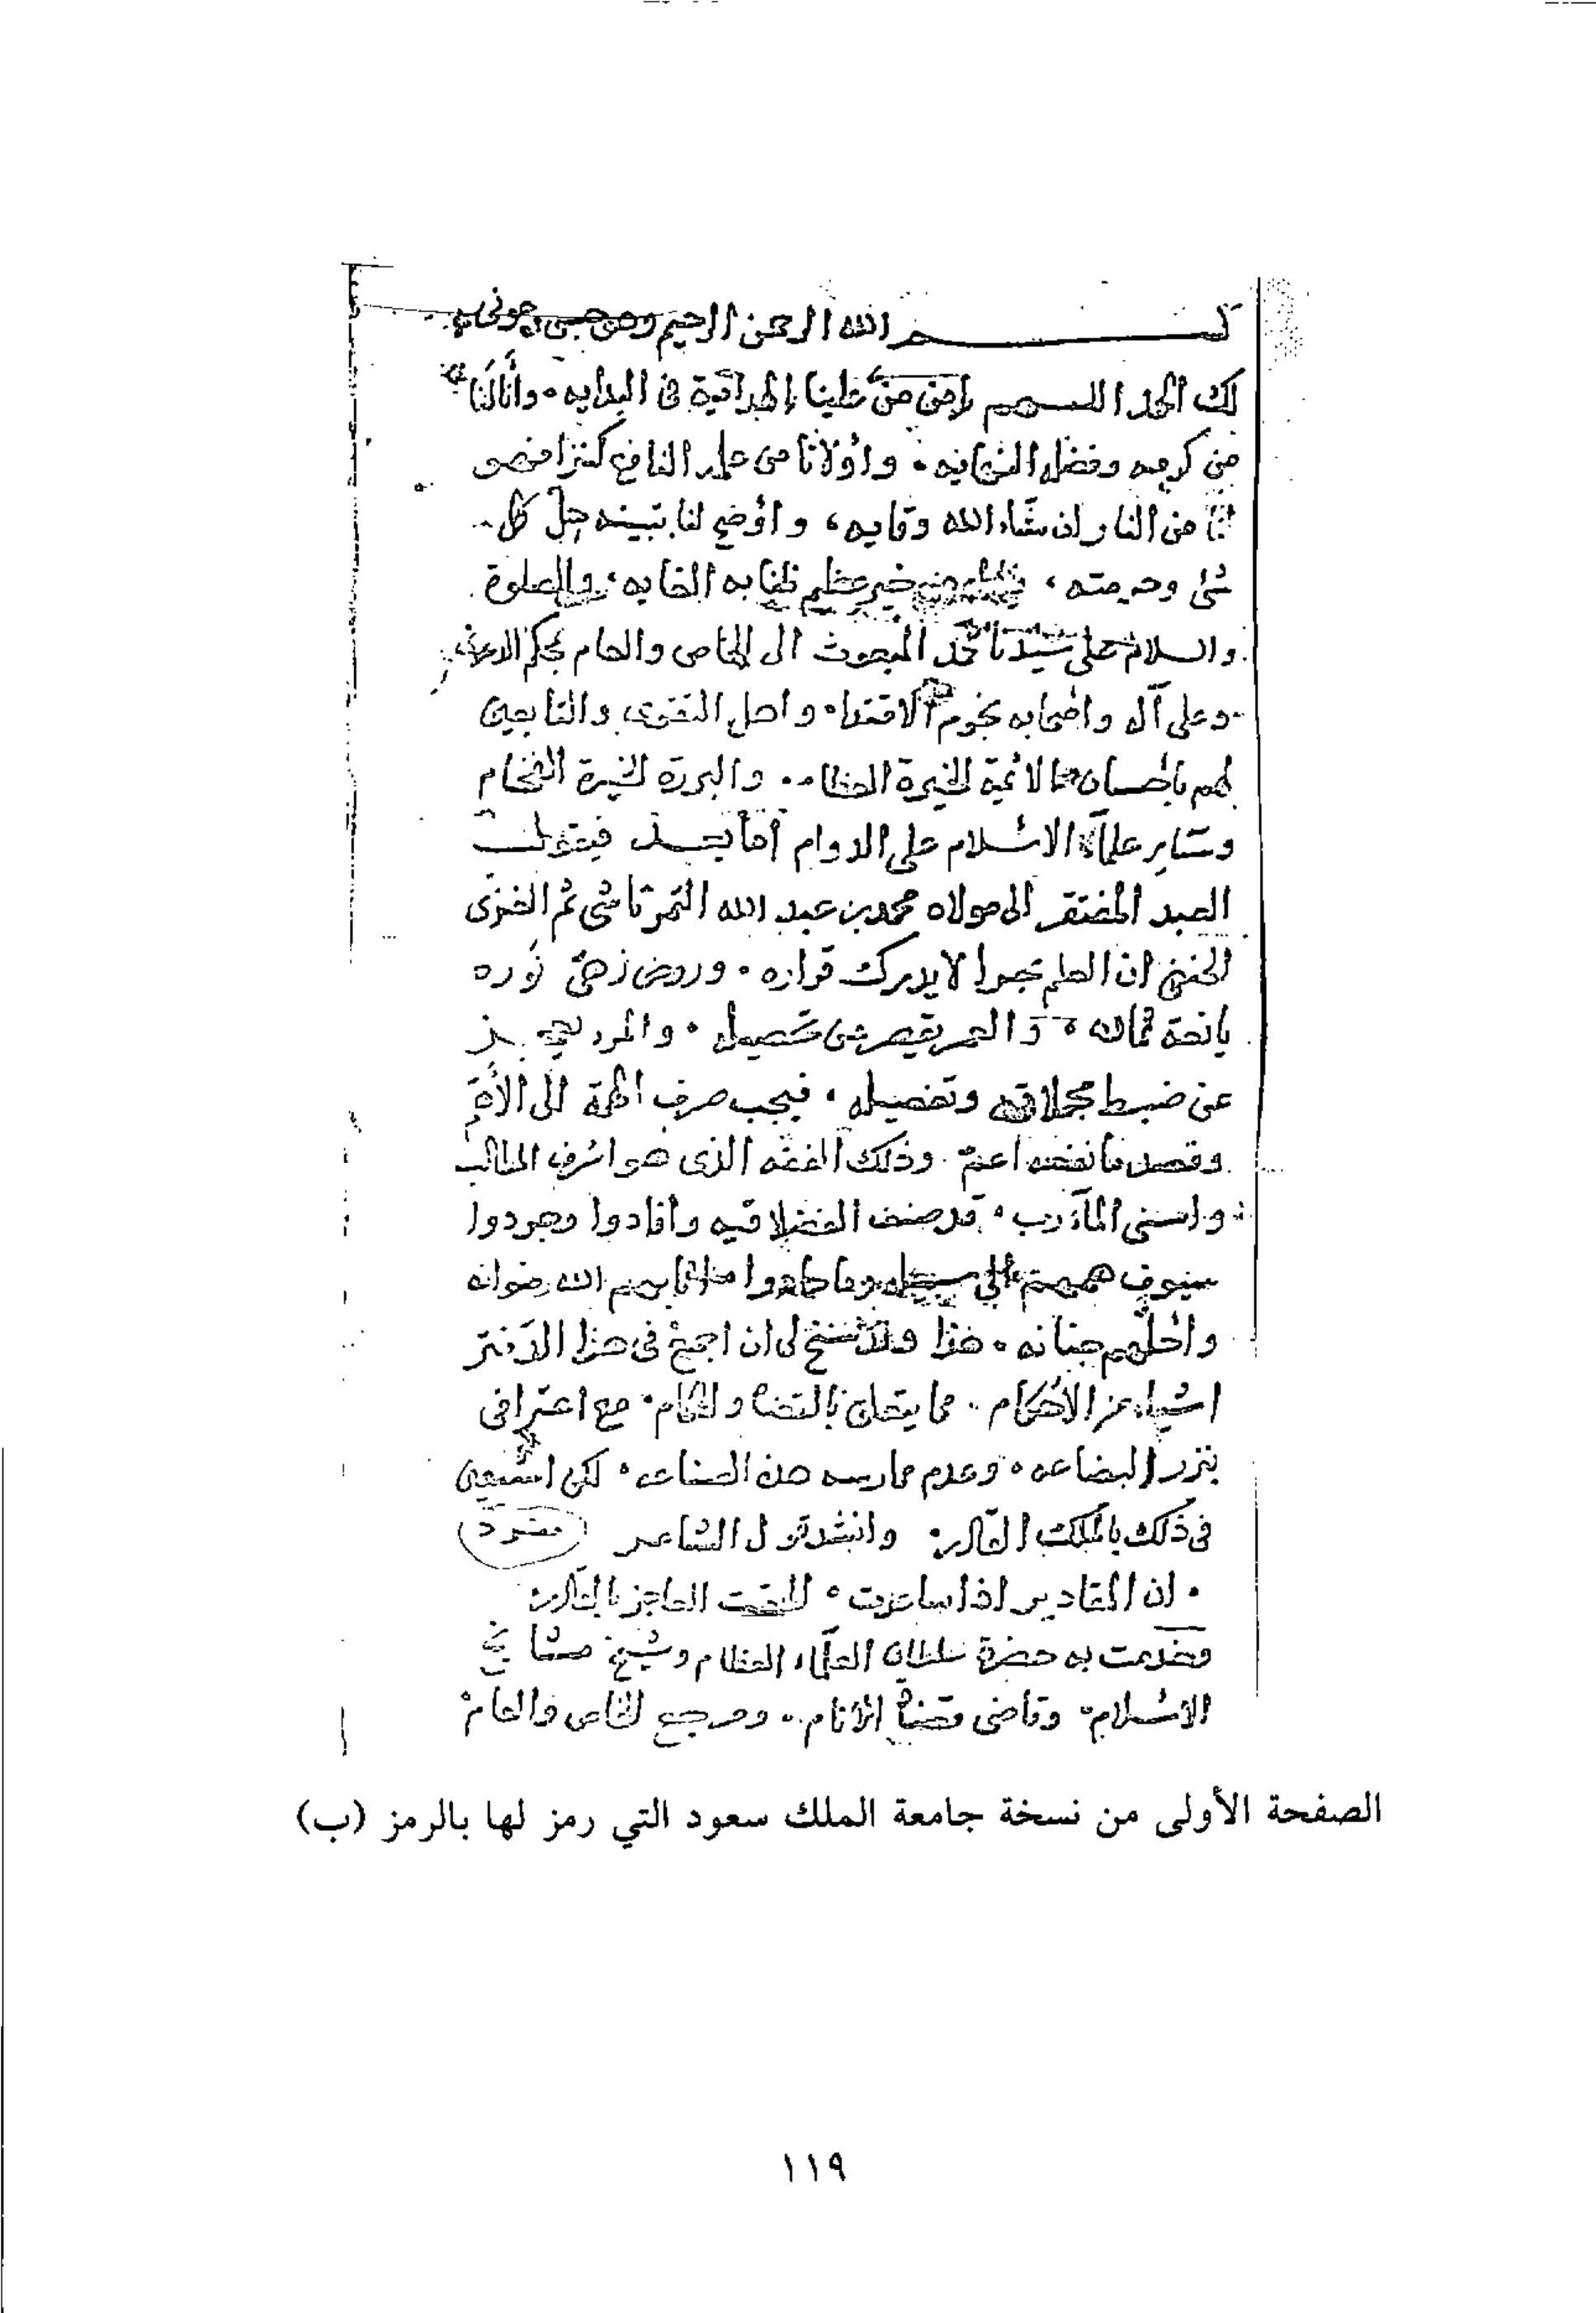 بسم الله الرحمن الرحيم وهو حسبى وعونى
لك الحمد اللهم يا من منّ علينا بالهداية فى البدايه ۰ وأنالنا
من كرمه وفضله النهايه ۰ واولانا من علمه النافع كنزا فهو
لنا من النار ان شاء الله وقايه، واوضح لنا بتبيينه حِلّ كل
شئ وحرمته، خير عظيم لنا به الغايه، والصلوة
والسلام على سيدنا محمد المبعوث الى الخاص والعام
وعلى آله واصحابه نجوم الاقتداء واهل التقوى والتابعين
لهم باحسان الائمة الخيرة العظام ۰ والبررة الخيرة الفخام
وسَايِر علمآء الاسلام على الدوام أمّا بعد فيقول
العبد المفتقر الى مولاه محمد بن عبد الله التمرتاشى ثم الغزى
الحنفى ان العلم بحر لا يدرك قراره ۰ وروض زهىّ نَوره
يانعة ثماره ۰ والعمر يقصر عن تحصيله ۰ والمرء يعجز
عن ضبط مجملاته وتفصيله ۰ فيجب صرف الهمة الى الأهمّ
وقصد ما نفعه اعمّ ۰ وذلك الفقه الذى هو اشرف المطالب
واسنى المآرب ۰ قد صنف الفضلا فيه وأفادوا وجردوا
سيوف هممهم الى سبيله وجاهدوا اثابهم الله رضوانه
واحلّهم جنانه ۰ هذا وقد سنح لى ان اجمع فى هذا الدفتر
اشياء من الاحكام ۰ مما يتعلق بالقضاء والحكام ۰ مع اعترافى
بنزر البضاعه ۰ وعدم ممارسه هذه الصناعه ۰ لكن استعين
فى ذلك بالملك القادر ۰ وانشد قول الشاعر مفرد
۰ ان المقادير اذا ساعدت ۰ الحقت العاجز بالقادر
وخدمت به حضرة سلطان العلماء العظام وشيخ مشايخ
الاسلام ۰ وقاضى قضاة الانام ۰ ومرجع الخاص والعام
الصفحة الأولى من نسخة جامعة الملك سعود التي رمز لها بالرمز (ب)
١١٩